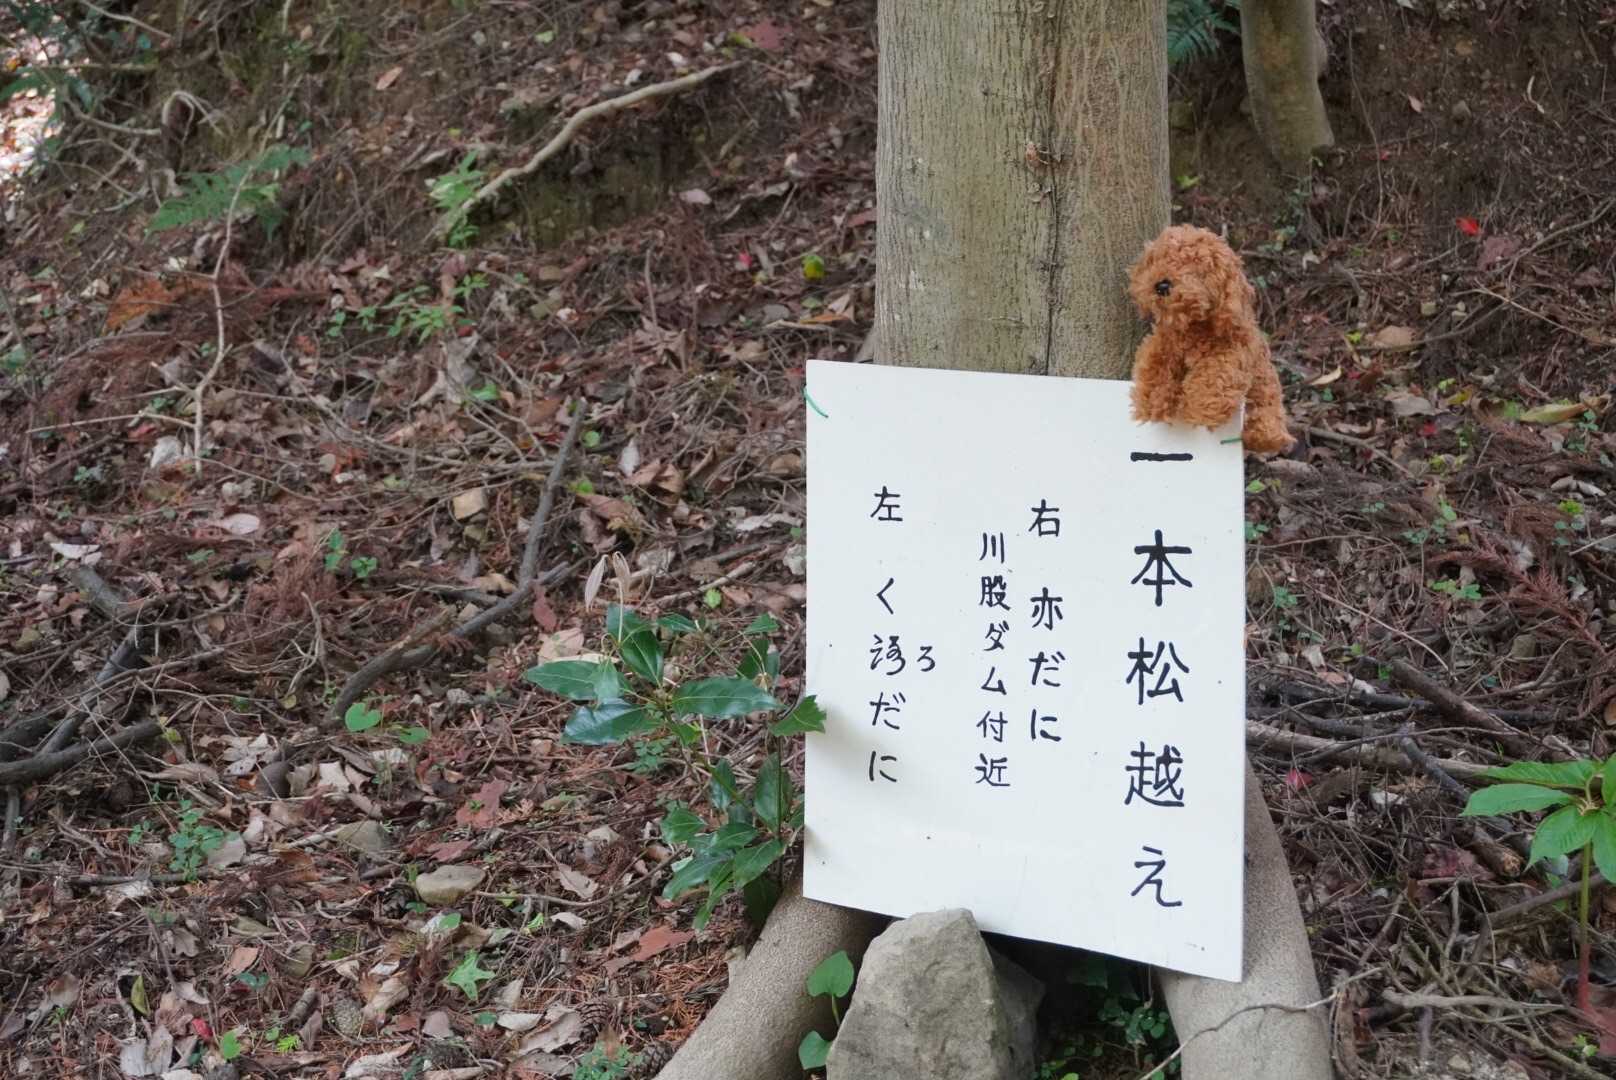 一本松越え
右 亦だに
川股ダム付近
左 く ろ だに